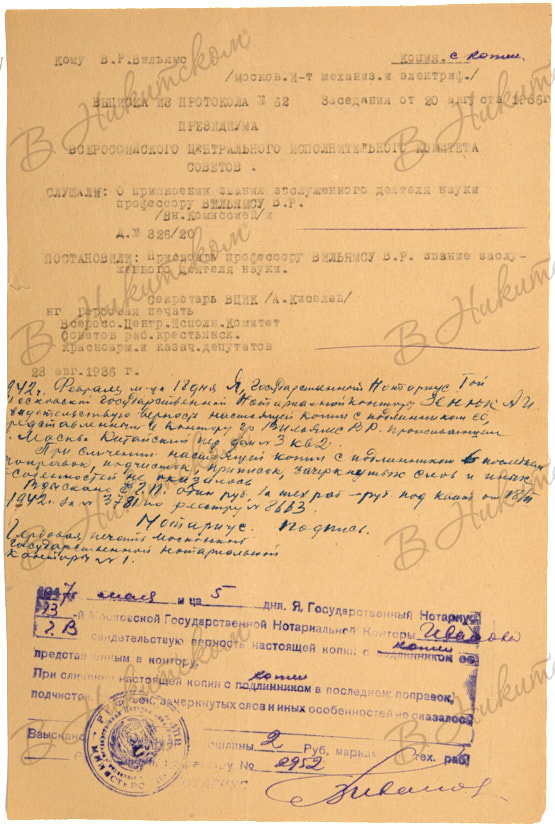 Кому В.Р.Вильямс
Копия. с копии
/москов. и-т механиз.и электриф./
ВЫПИСКА ИЗ ПРОТОКОЛА № 62 Заседания от 20 августа 1936г
ПРЕЗИДИУМА
ВСЕРОССИЙСКОГО ЦЕНТРАЛЬНОГО ИСПОЛНИТЕЛЬНОГО КОМИТЕТА
СОВЕТОВ .
СЛУШАЛИ: О присвоении звания заслуженного деятеля науки
профессору ВИЛЬЯМСУ В.Р.
/Вн.Комиссией/и
Д.№ 326/20
ПОСТАНОВИЛИ: Присвоить профессору ВИЛЬЯМСУ В.Р. звание заслу-
женного деятеля науки.
Секретарь ВЦИК /А.Киселев/
НГ Гербовая печать
Всеросс.Центр.Исполн.Комитет
Советов раб.крестьянск.
Красноарм.и казач.депутатов
23 авг.1936 г.
942г. Февраля м-ца 18 дня Я, Государственный Нотариус 1ой
Московской Государственной Нотариальной конторы
свидетельствую верность настоящей копии с подлинником ее,
представленным в контору гр Вильямс В.Р. проживающим
Москва Китайский пер дом 3 кв 2.
При сличении настоящей копии с подлинником в последнем
поправок, подчисток, приписок, зачеркнутых слов и иных
особенностей не оказалось
Взыскано один руб.
1942г. за № 3781 по реестру №
Нотариус. Подпись.
Гербовая печать Московской
Государственной Нотариальной
Конторы № 1.
1947г мая м ца 5 дня. Я, Государственный Нотариус
13 -й Московской Государственной Нотариальной Конторы Иванова
свидетельствую верность настоящей копии с копии подлинником ее
представленным в контору.
При сличении настоящей копии с копии подлинником в последнем поправок,
подчисток, приписок, зачеркнутых слов и иных особенностей не оказалось
Взыскано пошлины 2 Руб, марками тех. раб
реестру № 2952
НОТАРИУС
В. Никитском